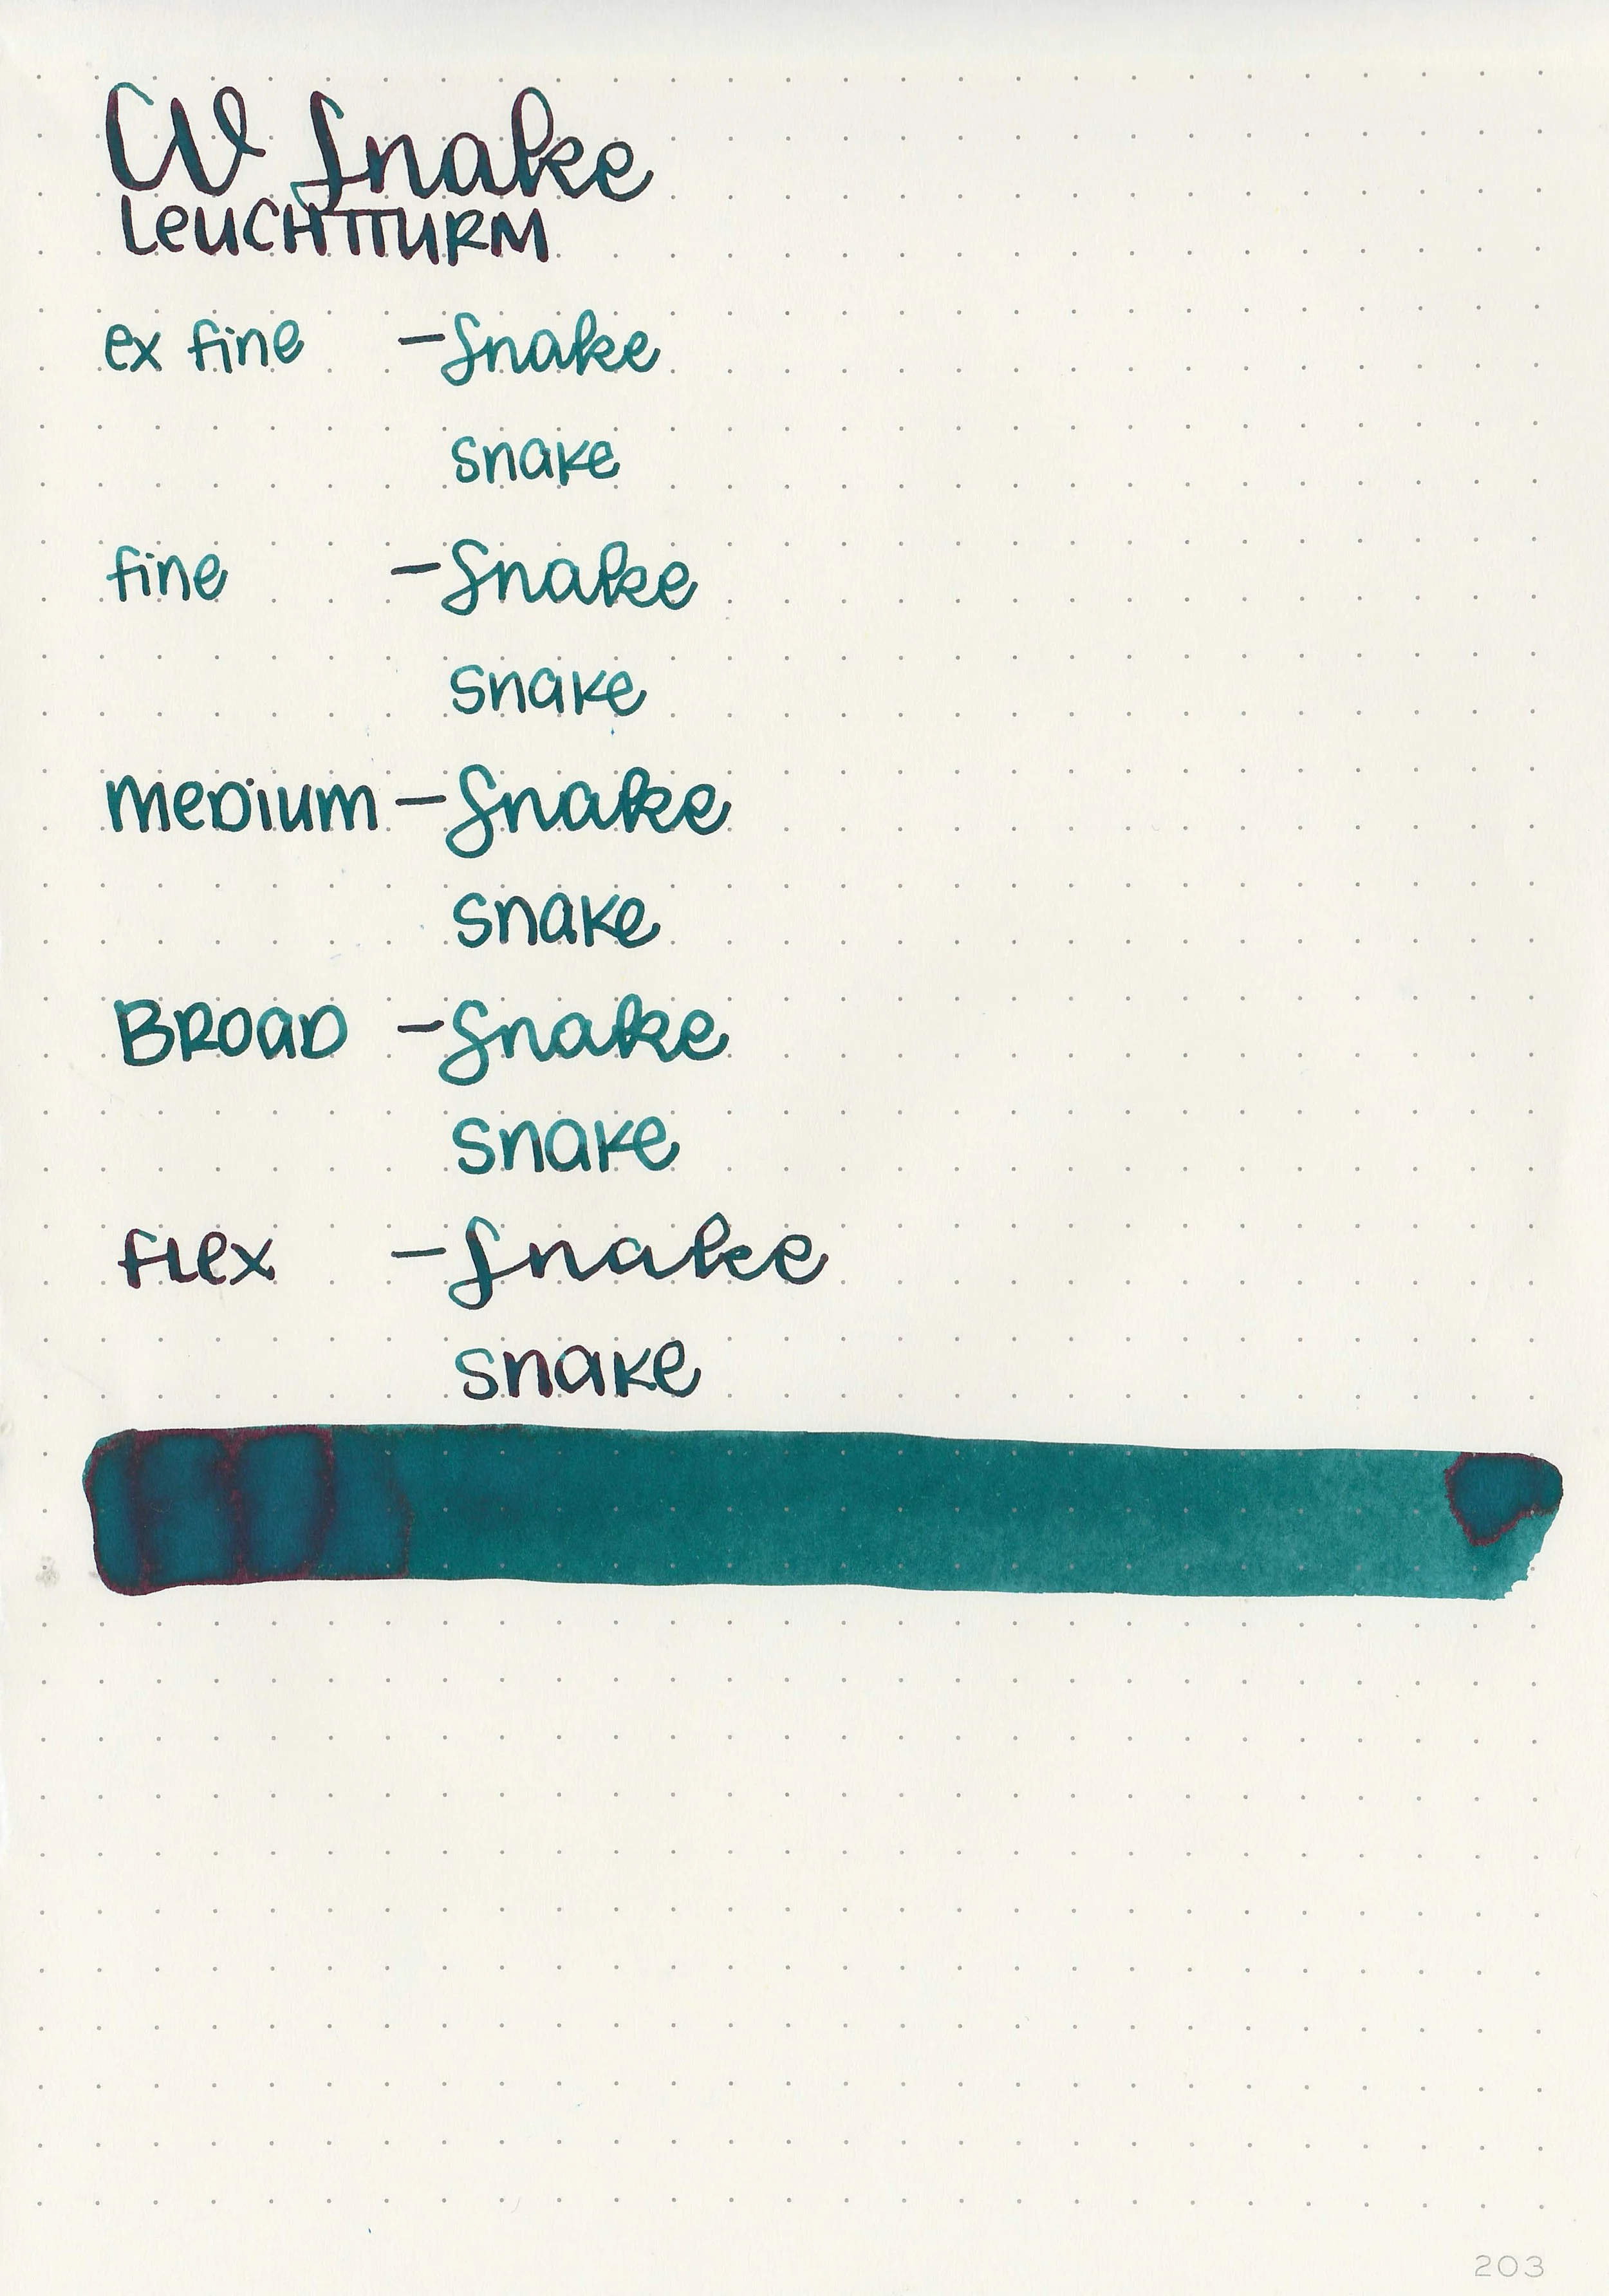 CV Snake
LeUCHTTURM
ex fine - Snake
snake
fine - Snake
snake
meDium - Snake
snake
BROaD - Snake
snake
flex - Snake
snake
203